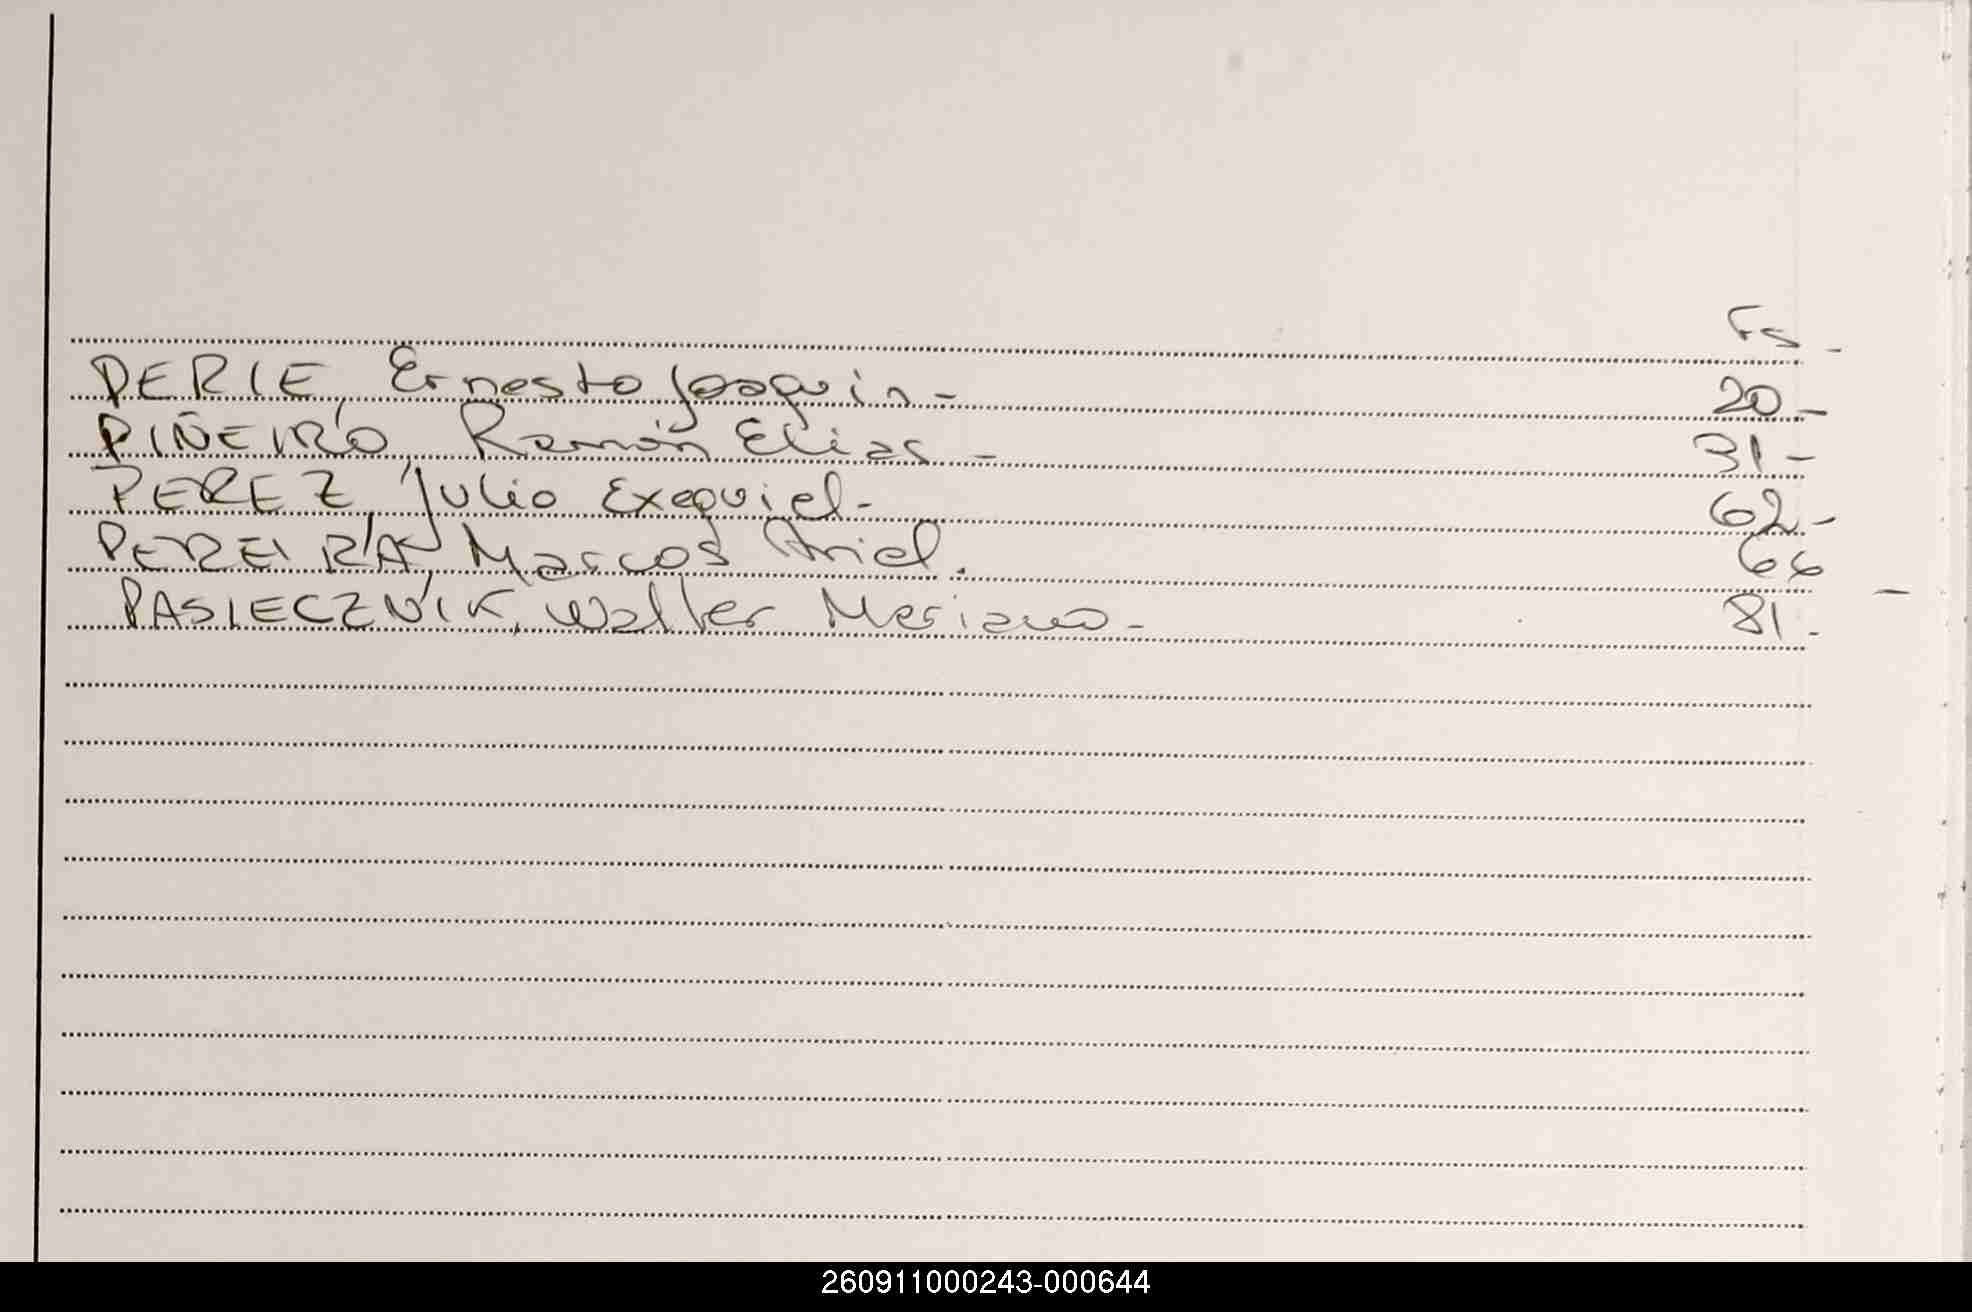 Fs -
PERIE, Ernesto Joaquin - 20 -
PIÑEIRO, Ramón Elias - 31 -
PEREZ, Julio Exequiel - 62 -
PEREIRA, Marcos Ariel. 66 -
PASIECZNIK, Walter Mariano - 81 -
260911000243-000644